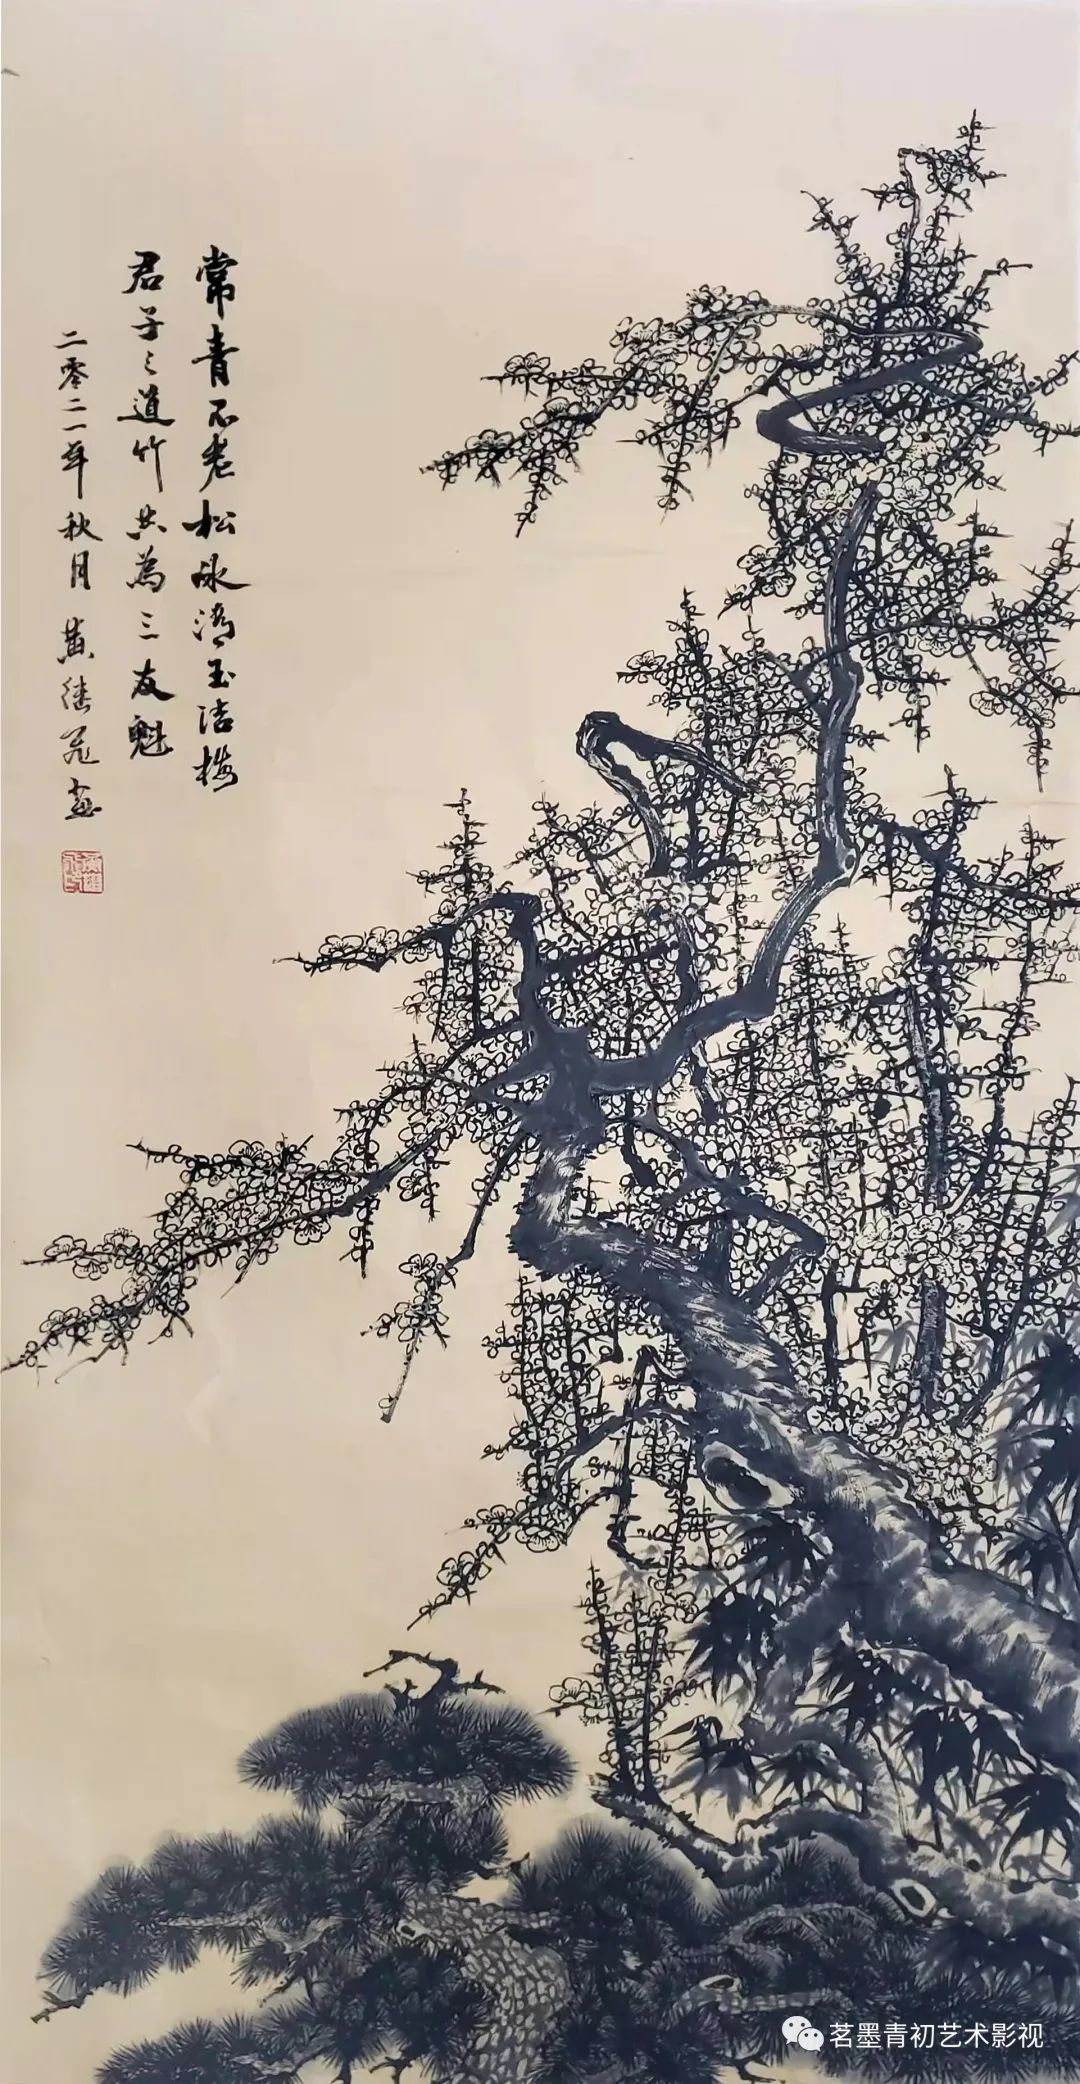 常青不老松冰清玉洁梅
君子之道竹共为三友魁
二零二一年秋月黄继冠画
茗墨青初艺术影视